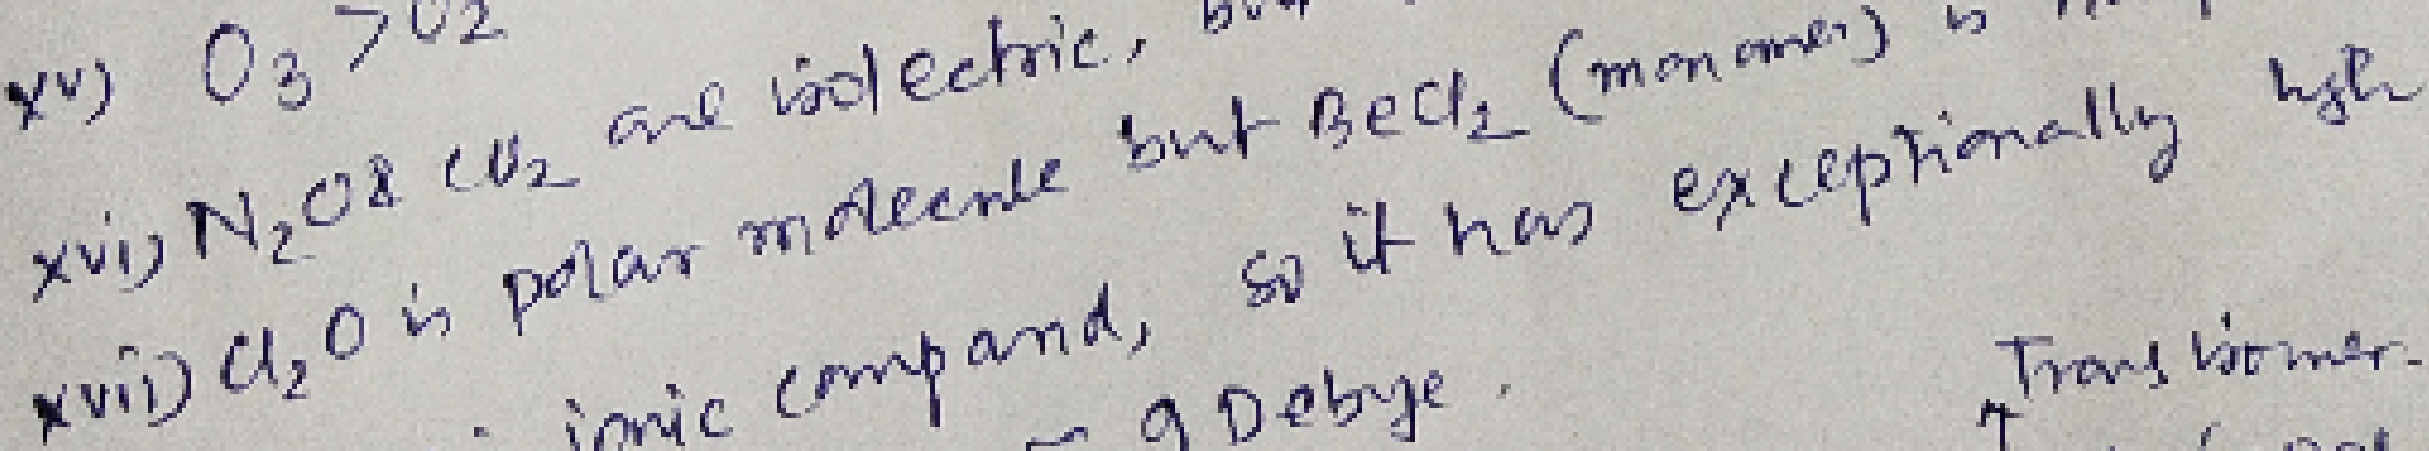 xv) O3 > O2
xvi) N2O & CO2 are isolectric, but
xvii) Cl2O is polar molecule but BeCl2 (monomer) is
ionic compand, so it has exceptionally high
9 Debye.
Trans isomer.